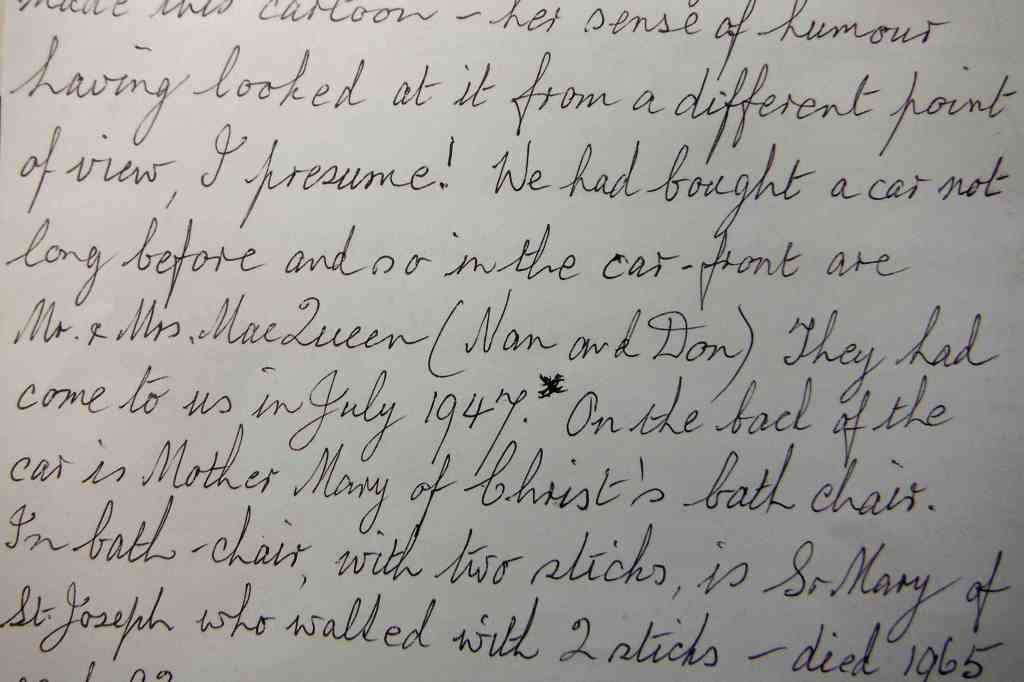 made this cartoon - her sense of humour
having looked at it from a different point
of view, I presume! We had bought a car not
long before and so in the car-front are
Mr. & Mrs. MacQueen (Nan and Don) They had
come to us in July 1947.* On the back of the
car is Mother Mary of Christ's bath chair.
In bath-chair, with two sticks, is Sr Mary of
St. Joseph who walked with 2 sticks - died 1965